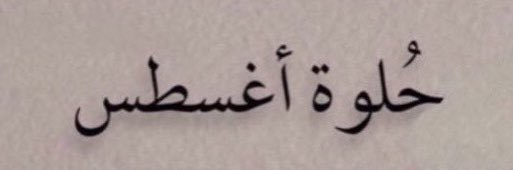 حُلوة أغسطس